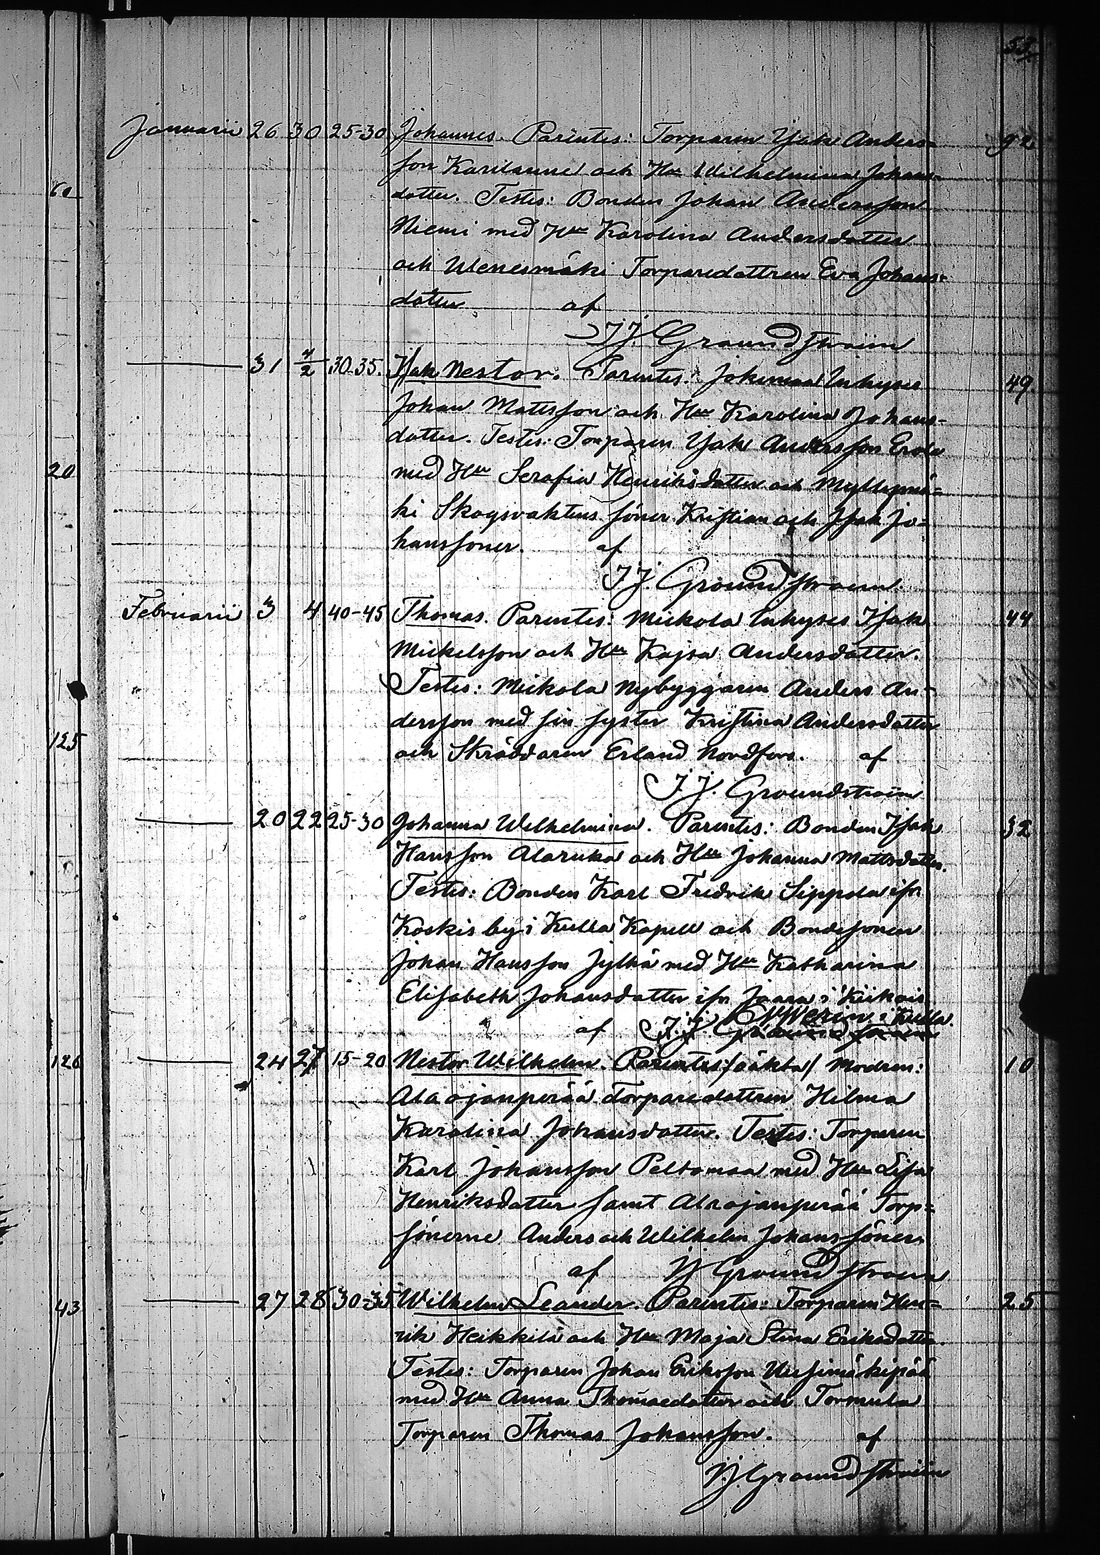 53.
Januarii 26 30 25-30 Johannes. Parentes: Torparen Isak Anders- 92
son Karilanne och Hu Wilhelmina Johans-
60
dotter. Testes: Bonden Johan Andersson
Niemi med Hu Karolina Andersdotter
och Wenesmäki Torparedottren Eva Johans-
dotter af
J.J. Groundstroem
31 1/2 30-35. Isak Nestor. Parentes: Jokimaa Inhyses 49
Johan Mattsson och Hu Karolina Johans-
dotter. Testes: Torparen Isak Andersson Erola
20
med Hu Serafia Henriksdotter och Myllymä-
ki Skogsvaktens söner Kristian och Isak Jo-
hanssöner. af
J.J. Groundstroem.
Februarii 3 4 40-45 Thomas. Parentes: Mickola Inhyses Isak 44
Mickelsson och Hu Kajsa Andersdotter.
Testes: Mickola Nybyggaren Anders An-
dersson med sin syster Kristina Andersdotter
125
och Skräddaren Erland Nordfors. af
J.J. Groundstroem
20 22 25-30 Johanna Wilhelmina. Parentes: Bonden Isak 32
Hansson Alaruka och Hu Johanna Mattsdotter.
Testes: Bonden Karl Fredrik Sippola ifr
Koskis by i Kulla Kapell och Bondesonen
Johan Hansson Jylhä med Hu Katharina
Elisabeth Johansdotter ifr Jaara i Kiikois
af Weren i Kulla
J.J. Groundstroem
126
24 27 15-20 Nestor Wilhelm. Parentes /oäkta/ Modren: 10
Alaojanperää Torparedottren Hilma
Karolina Johansdotter. Testes: Torparen
Karl Johansson Peltomaa med Hu Lisa
Henriksdotter samt Alaojanperää Torp-
sönerne Anders och Wilhelm Johanssöner.
af J.J. Groundstroem
43
27 28 30-35 Wilhelm Leander. Parentes: Torparen Hen- 25
rik Heikkilä och Hu Maja Stina Eriksdotter
Testes: Torparen Johan Eriksson
med Hu Anna Thomasdotter och Tormula
Torparen Thomas Johansson. af
J.J. Groundstroem